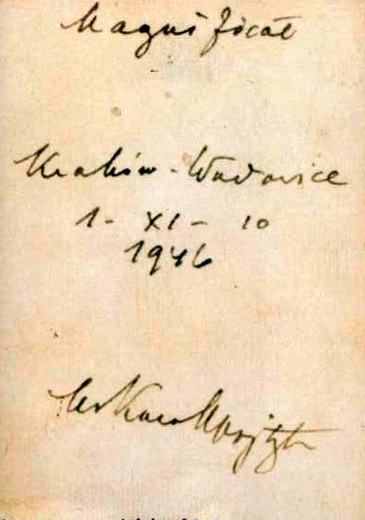 Magnificat
Kraków - Wadowice
1 - XI - 10
1946
Karol Wojtyła